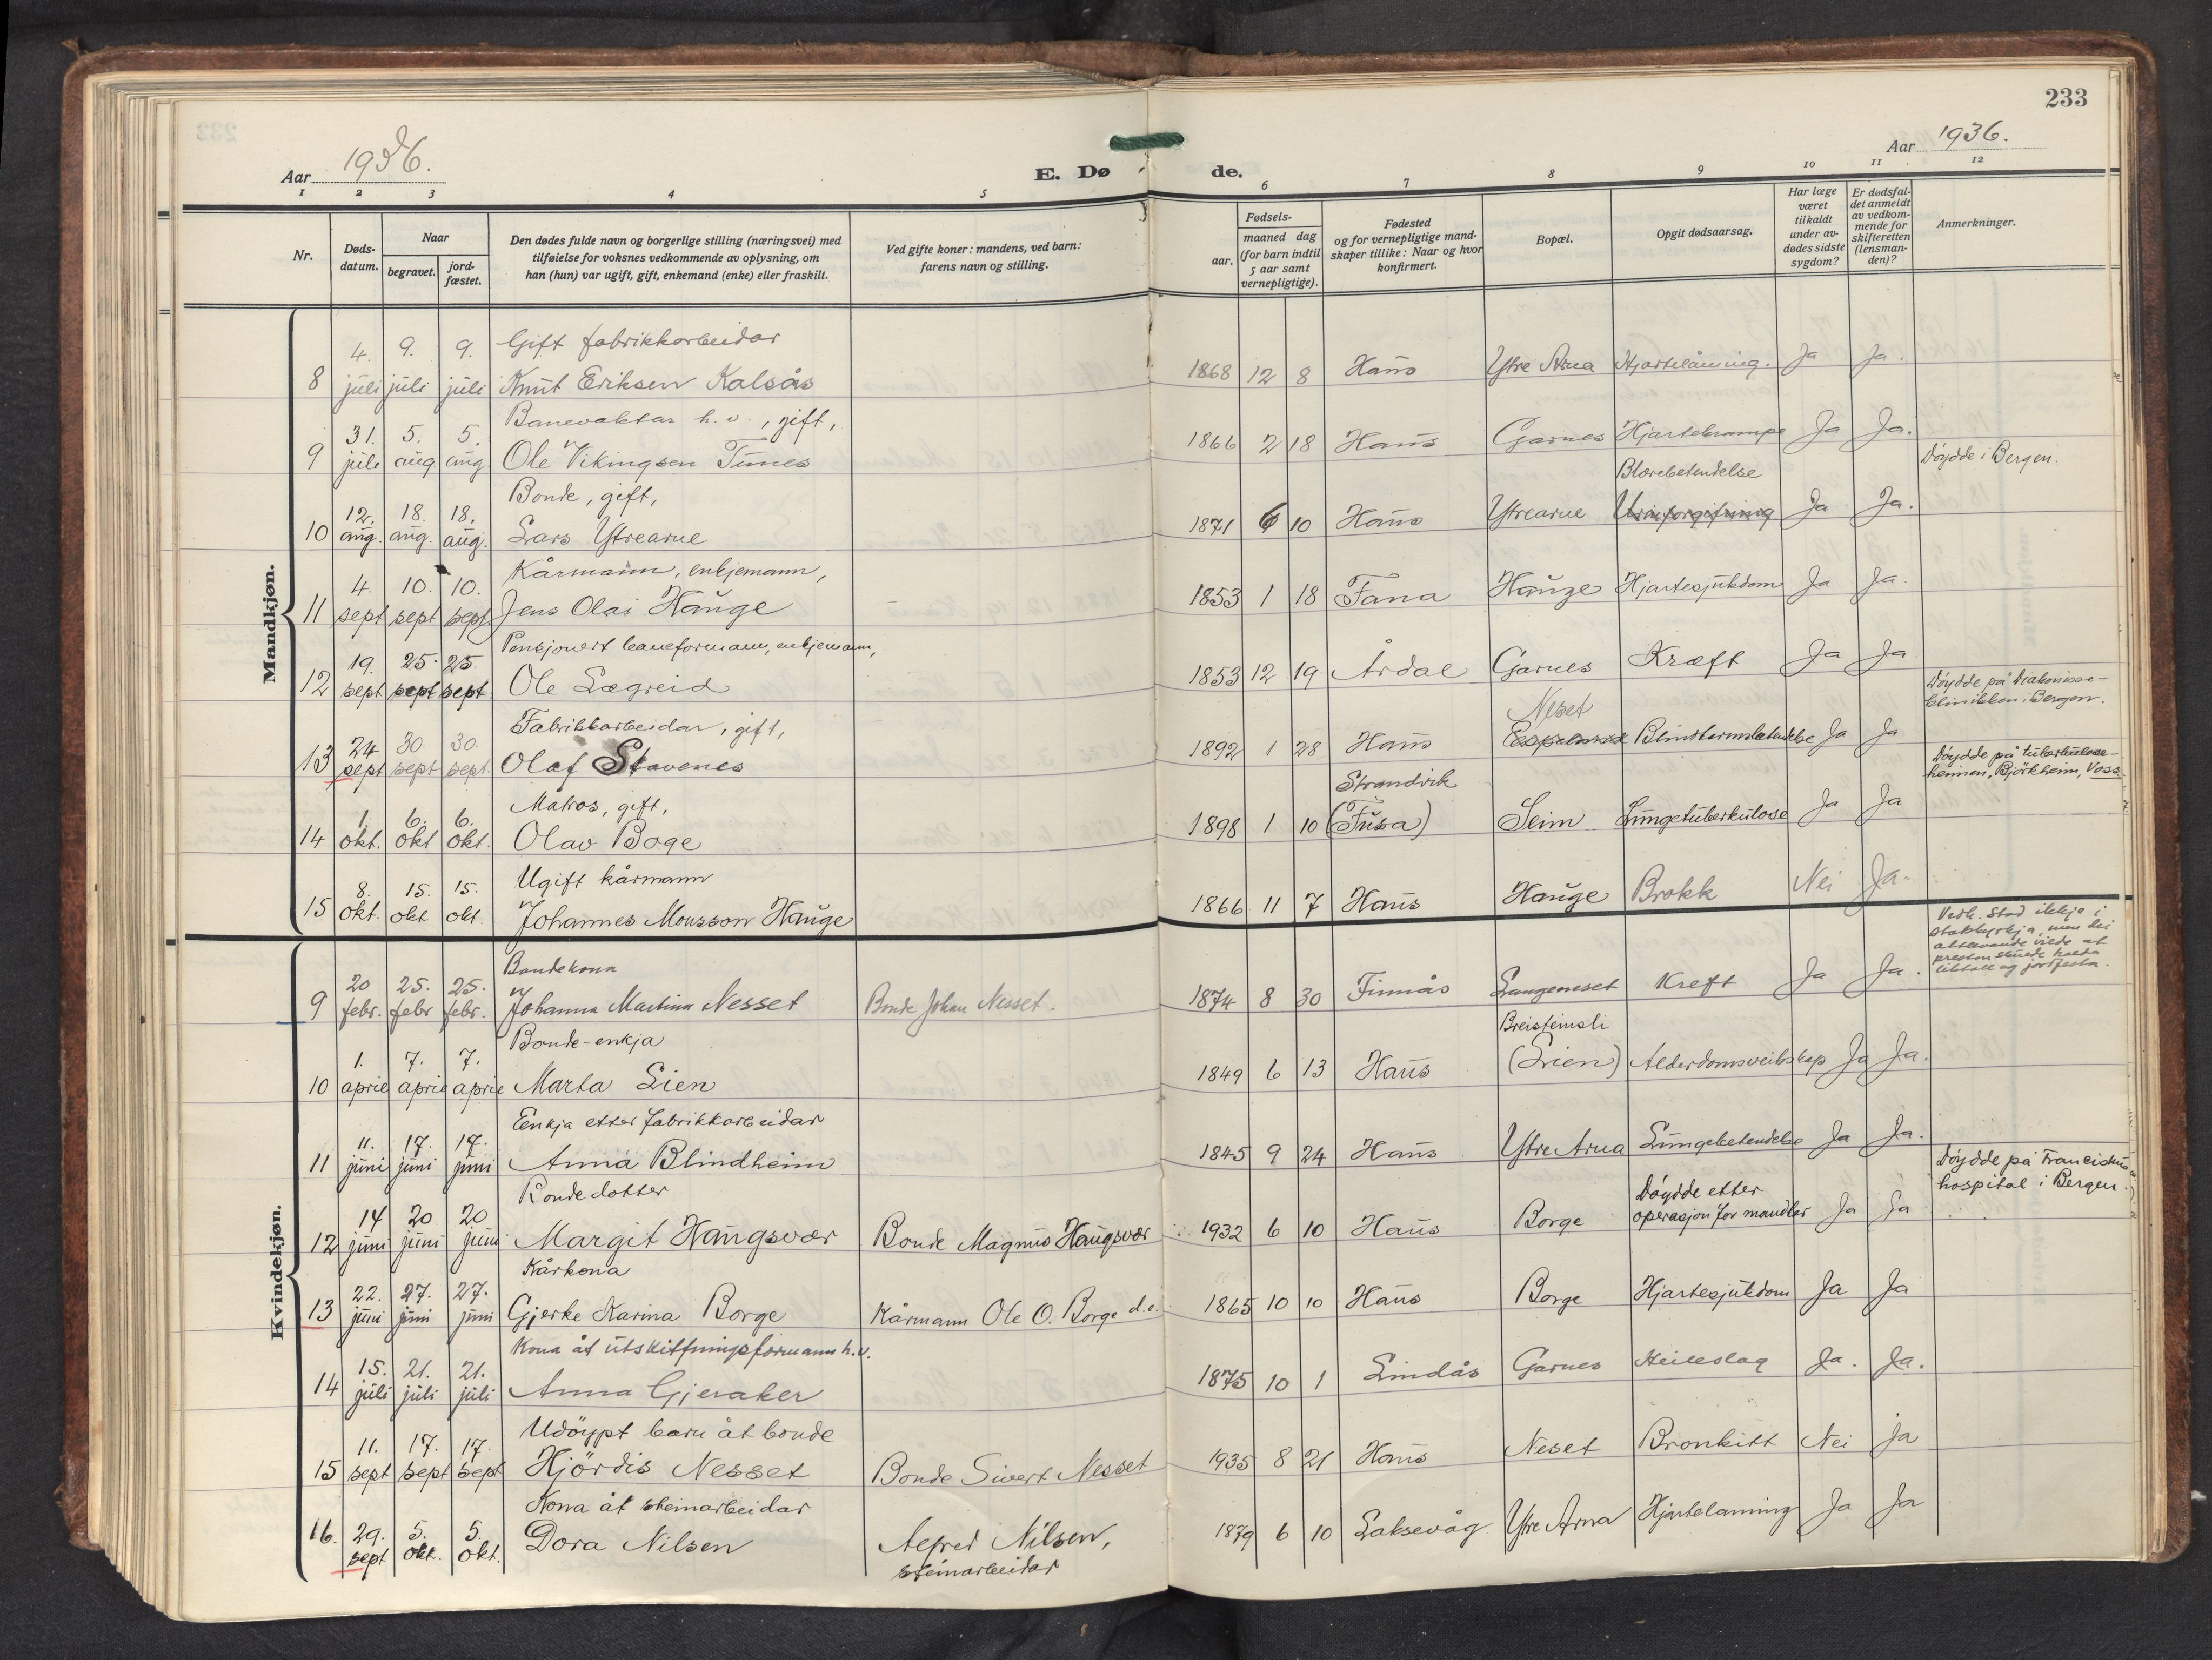 233
Aar 1936.
E. Døde.
Aar 1936.
1 2 3 4 5 6 7 8 9 10 11 12
Nr.
Døds-
datum.
Naar
begravet.
jord-
fæstet.
Den dødes fulde navn og borgerlige stilling (næringsvei) med
tilføielse for voksnes vedkommende av oplysning, om
han (hun) var ugift, gift, enkemand (enke) eller fraskilt.
Ved gifte koner: mandens, ved barn:
farens navn og stilling.
Fødsels-
aar.
maaned dag
(for barn indtil
5 aar samt
vernepligtige).
Fødested
og for vernepligtige mand-
skaper tillike: Naar og hvor
konfirmert.
Bopæl.
Opgit dødsaarsag.
Har læge
været
tilkaldt
under av-
dødes sidste
sygdom?
Er dødsfal-
det anmeldt
av vedkom-
mende for
skifteretten
(lensman-
den)?
Anmerkninger.
Mandkjøn.
4. 9. 9. Gift fabrikkarbeidar
8 juli juli juli Knut Eriksen Kalsås 1868 12 8 Haus Ytre Arna Hjartelåming. Ja Ja.
31. 5. 5. Banevaktar h.v., gift,
9 juli aug. aug Ole Vikingsen Tunes 1866 2 18 Haus Garnes Hjartekrampe Ja Ja.
Døydde i Bergen.
12. 18. 18. Bonde, gift, Blærebetendelse
10 aug. aug. aug. Lars Ytrearne 1871 6 10 Haus Ytrearne Urinforgiftning Ja Ja.
4. 10. 10. Kårmann, enkjemann,
11 sept sept sept. Jens Olai Hauge 1853 1 18 Fana Hauge Hjartesjukdom Ja Ja.
19. 25. 25 Pensjonert baneformann, enkjemann,
12 sept sept sept Ole Lægreid 1853 12 19 Årdal Garnes Kræft Ja Ja
Døydde på Diakonisse-
klinikken i Bergen.
24 30. 30. Fabrikkarbeidar, gift, Neset
13 sept sept sept. Olaf Stavenes 1892 1 28 Haus Blindtarmsbetendelse Ja Ja
Døydde på tuberkulose-
heimen, Björkheim, Voss.
1. 6. 6. Matros, gift, Strandvik
14 okt. okt okt. Olav Boge 1898 1 10 (Fusa) Seim Lungetuberkulose Ja Ja
8. 15. 15. Ugift kårmann
15 okt. okt okt. Johannes Monsson Hauge 1866 11 7 Haus Hauge Brokk Nei Ja.
Kvindekjøn.
20 25. 25. Bondekona
9 febr. febr febr. Johanna Martina Nesset Bonde Johan Nesset. 1874 8 30 Finnås Langeneset Kreft Ja Ja.
1. 7. 7. Bonde-enkja Breisteinsli
10 april april april Marta Lien 1849 6 13 Haus (Lien) Alderdomsveikskap Ja Ja.
11. 17. 17. Eenkja etter fabrikkarbeidar
11 juni juni juni Anna Blindheim 1845 9 24 Haus Ytre Arna Lungebetendelse Ja Ja.
14 20 20 Bondedotter Døydde etter
12 juni juni juni Margit Haugsvær Bonde Magnus Haugsvær 1932 6 10 Haus Borge operasjon for mandler Ja Ja
Døydde på Franciskus
hospital i Bergen.
22. 27. 27. Kårkona
13 juni juni juni Gjerke Karina Borge Kårmann Ole O. Borge d.e. 1865 10 10 Haus Borge Hjartesjukdom Ja Ja
15. 21. 21. Kona åt utskiftningsformann h.v.
14 juli juli juli Anna Gjeraker 1875 10 1 Lindås Garnes Heileslag Ja. Ja.
11. 17. 17. Udøypt barn åt bonde
15 sept sept sept Hjördis Nesset Bonde Sivert Nesset 1935 8 21 Haus Neset Bronkitt Nei Ja
Kona åt steinarbeidar
16. 29. 5. 5. Dora Nilsen Alfred Nilsen, 1879 6 10 Laksevåg Ytre Arna Hjartelamning Ja Ja
sept okt. okt. steinarbeidar